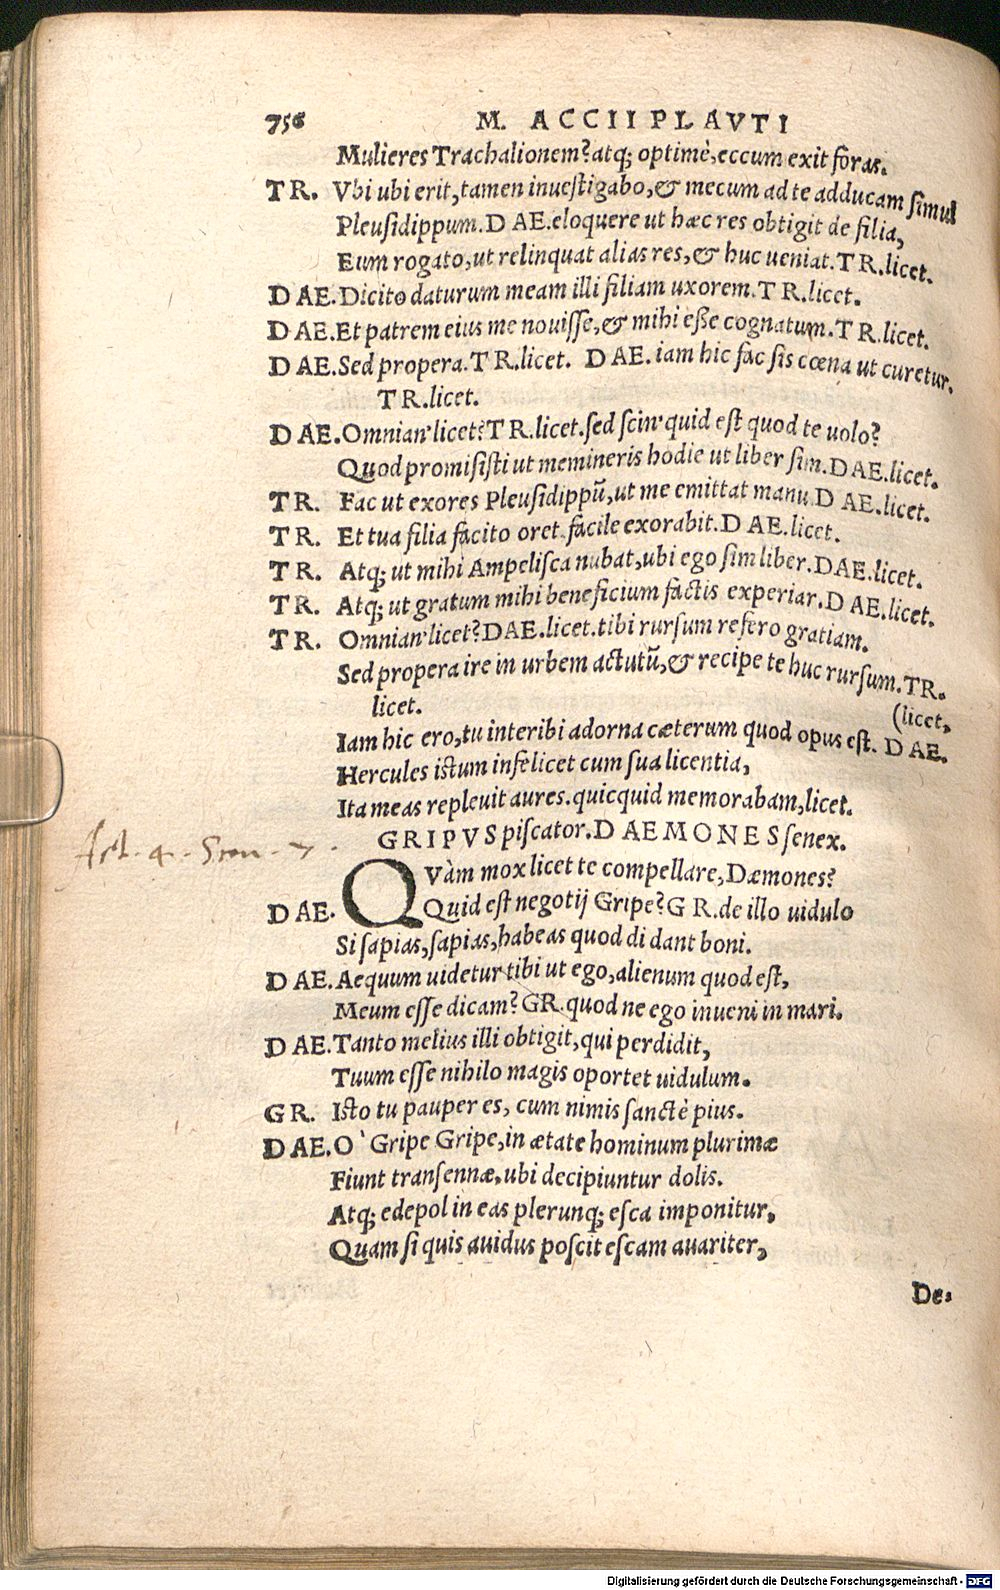 756 M. ACCII PLAVTI
Mulieres Trachalionem? atq; optimè, eccum exit foras.
TR. Vbi ubi erit, tamen inuestigabo, & mecum ad te adducam simul
Pleusidippum. DAE. eloquere ut hæc res obtigit de filia,
Eum rogato, ut relinquat alias res, & huc ueniat. TR. licet.
DAE. Dicito daturum meam illi filiam uxorem. TR. licet.
DAE. Et patrem eius me nouisse, & mihi eße cognatum. TR. licet.
DAE. Sed propera. TR. licet. DAE. iam hic fac sis cœna ut curetur.
TR. licet.
DAE. Omnian' licet? TR. licet. sed scin' quid est quod te uolo?
Quod promisisti ut memineris hodie ut liber sim. DAE. licet.
TR. Fac ut exores Pleusidippũ, ut me emittat manu. DAE. licet.
TR. Et tua filia facito oret. facile exorabit. DAE. licet.
TR. Atq; ut mihi Ampelisca nubat, ubi ego sim liber. DAE. licet.
TR. Atq; ut gratum mihi beneficium factis experiar. DAE. licet.
TR. Omnian' licet? DAE. licet. tibi rursum refero gratiam.
Sed propera ire in urbem actutũ, & recipe te huc rursum. TR.
licet. (licet,
Iam hic ero, tu interibi adorna cæterum quod opus est. DAE.
Hercules istum infelicet cum sua licentia,
Ita meas repleuit aures. quicquid memorabam, licet.
Act. 4. Scen. 7.
GRIPVS piscator. DAEMONES senex.
QVàm mox licet te compellare, Dæmones?
DAE. Quid est negotij Gripe? GR. de illo uidulo
Si sapias, sapias, habeas quod di dant boni.
DAE. Aequum uidetur tibi ut ego, alienum quod est,
Meum esse dicam? GR. quod ne ego inueni in mari.
DAE. Tanto melius illi obtigit, qui perdidit,
Tuum esse nihilo magis oportet uidulum.
GR. Isto tu pauper es, cum nimis sanctè pius.
DAE. O` Gripe Gripe, in ætate hominum plurimæ
Fiunt transennæ, ubi decipiuntur dolis.
Atq; edepol in eas plerunq; esca imponitur,
Quam si quis auidus poscit escam auariter,
De-
Digitalisierung gefördert durch die Deutsche Forschungsgemeinschaft - DFG